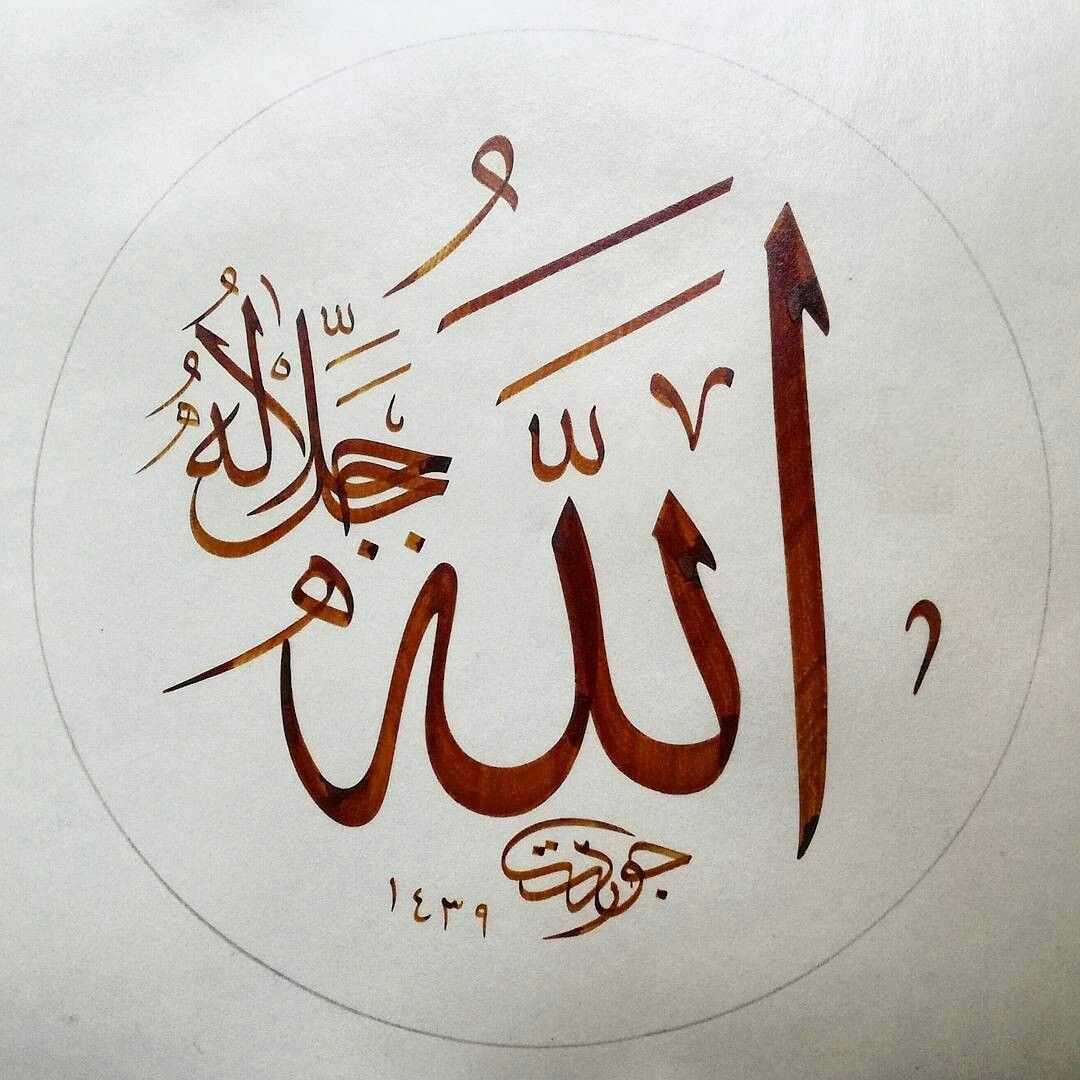 الله
جل جلاله
جودت
١٤٣٩